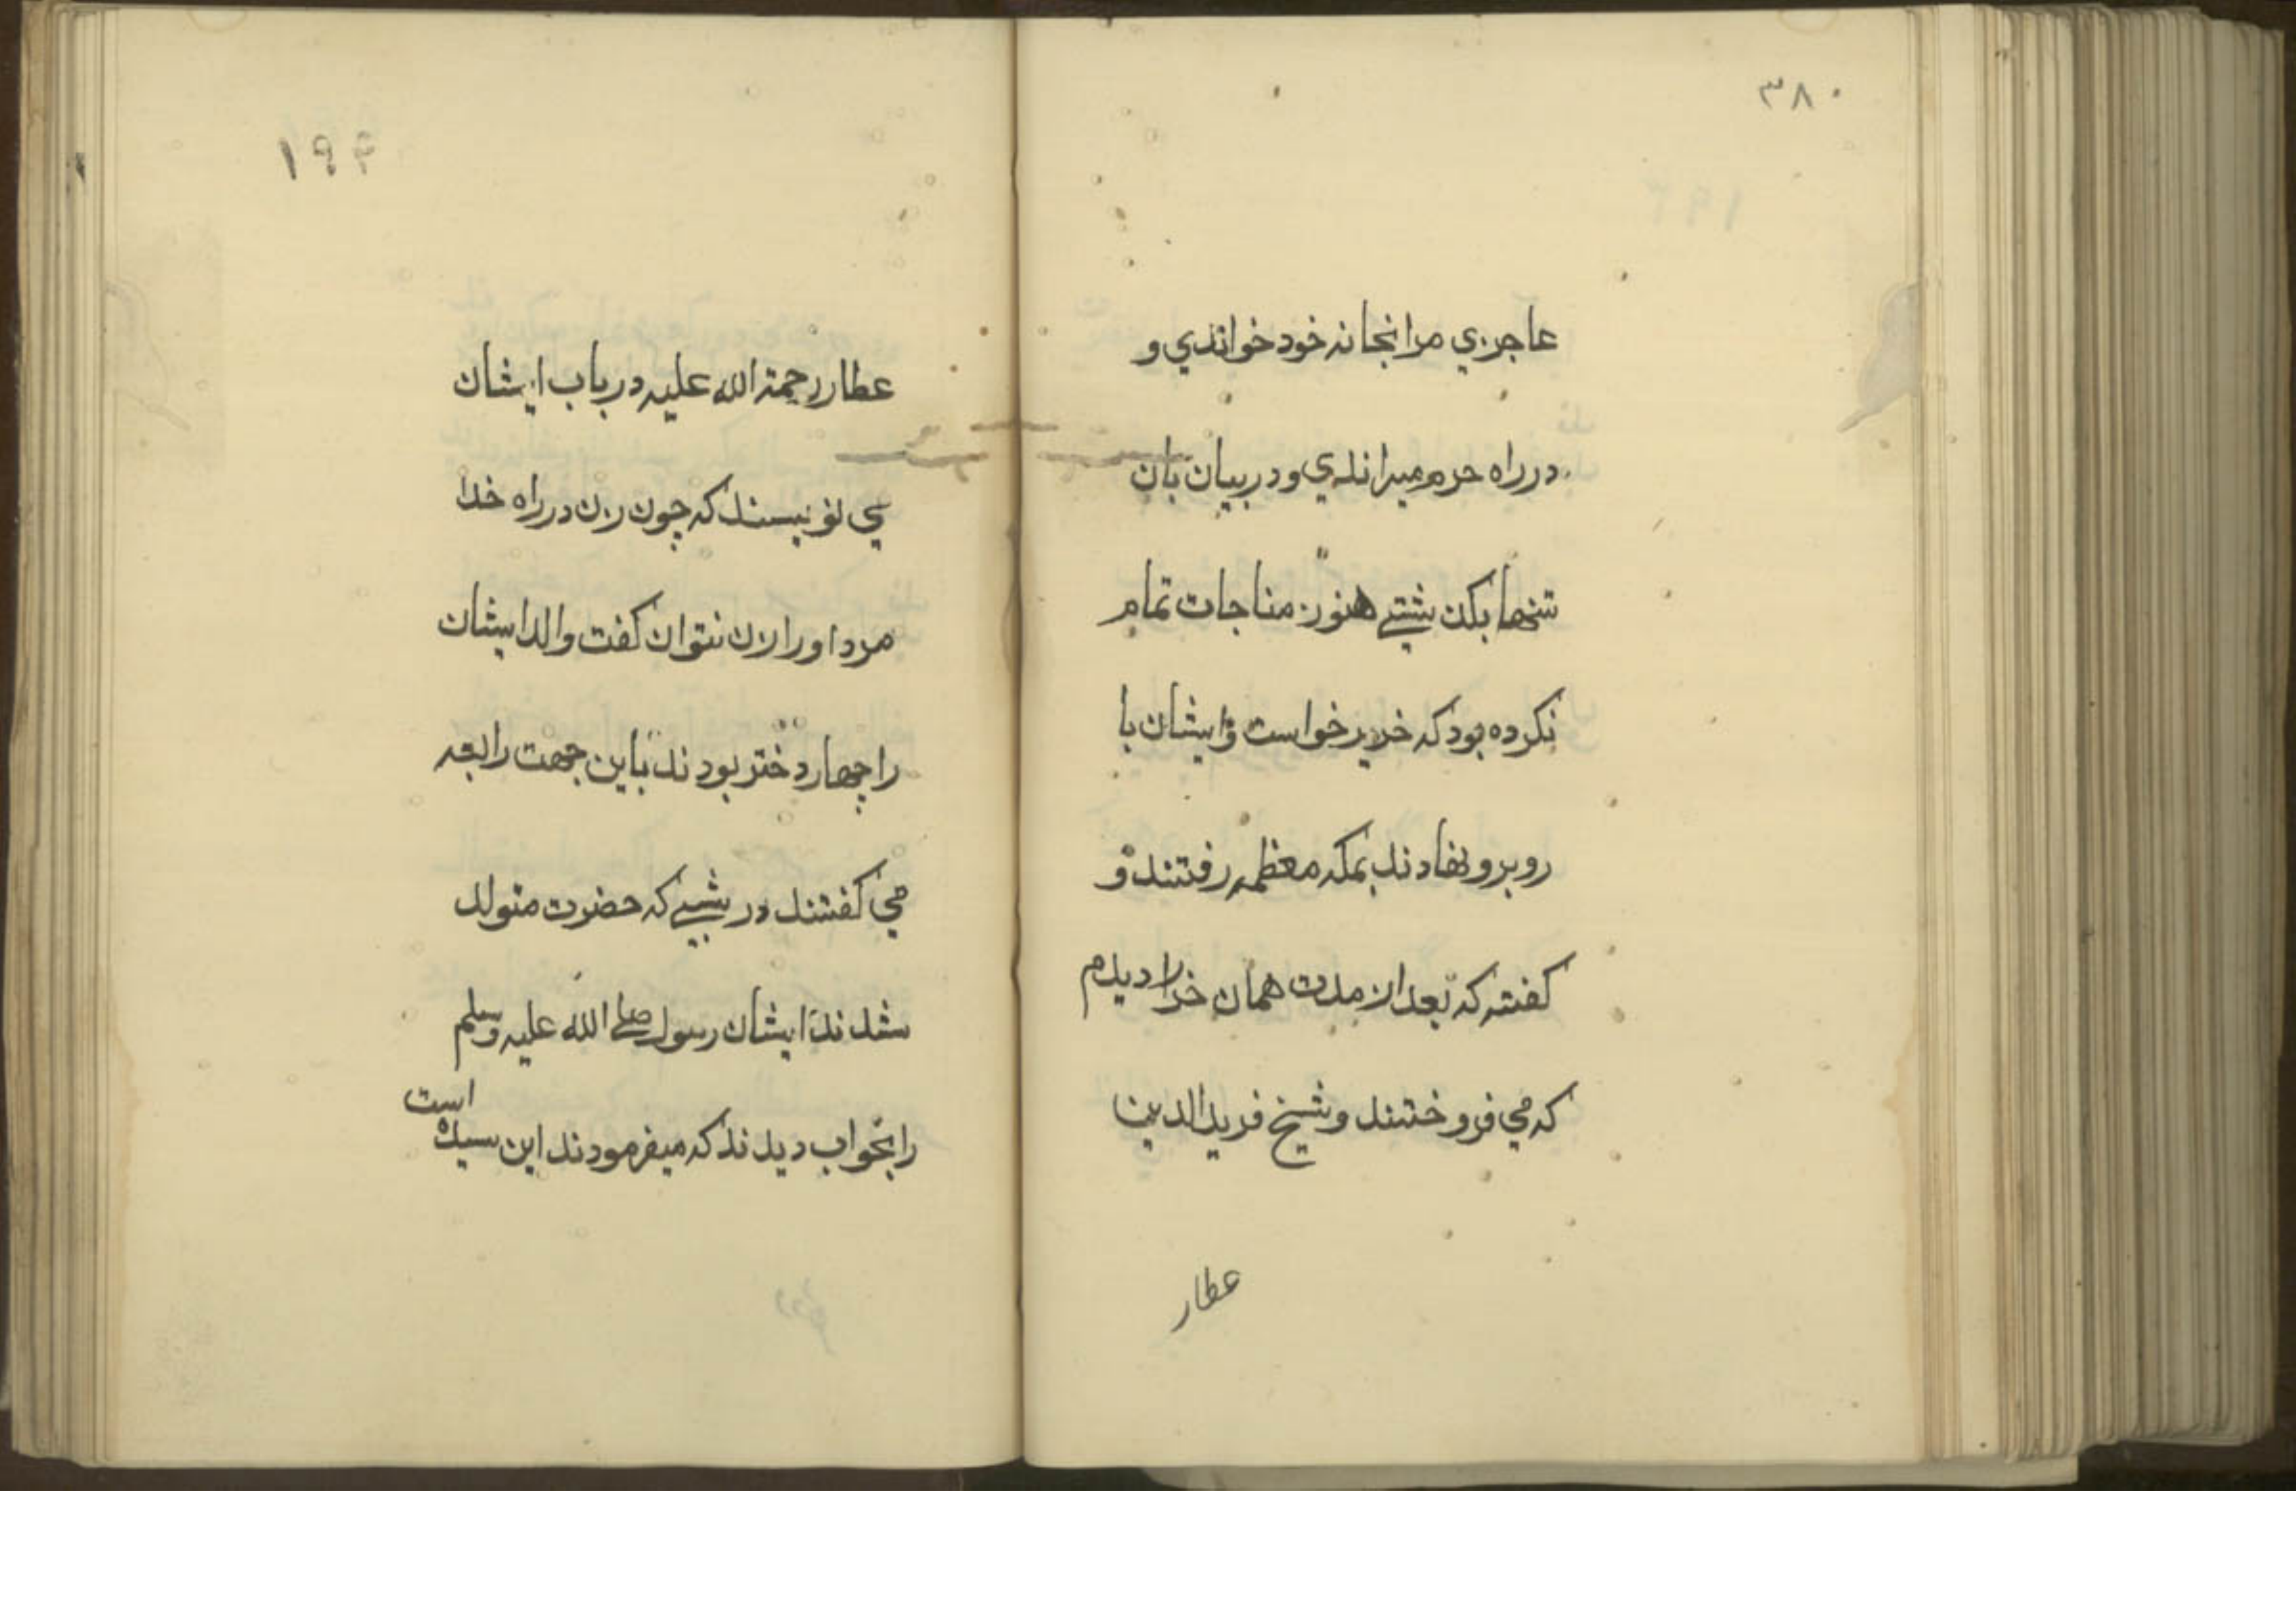 ۳۸۰
عاجزي مرا بخانه خود خواندي و
در راه حرم ميراندي و در بيان بان
تنها بكذشتے هنوز مناجات تمام
نكرده بود كه خر برخواست و ايشان با
روبرو نهادند بمكه معظمه رفتند و
كفته كه بعد از مدت همان خر را ديدم
كه مي فروختند و شيخ فريد الدين
عطار
۱۹۴
عطار رحمة الله عليه در باب ايشان
مي نويسند كه چون زن در راه خدا
مرد او را زن نتوان كفت والد ايشان
را چهار دختر بودند باين جهت رابعه
مي كفتند در شبے كه حضرت متولد
شدند ايشان رسول صلے الله عليه وسلم
را بخواب ديدند كه ميفرمودند اين سيده است